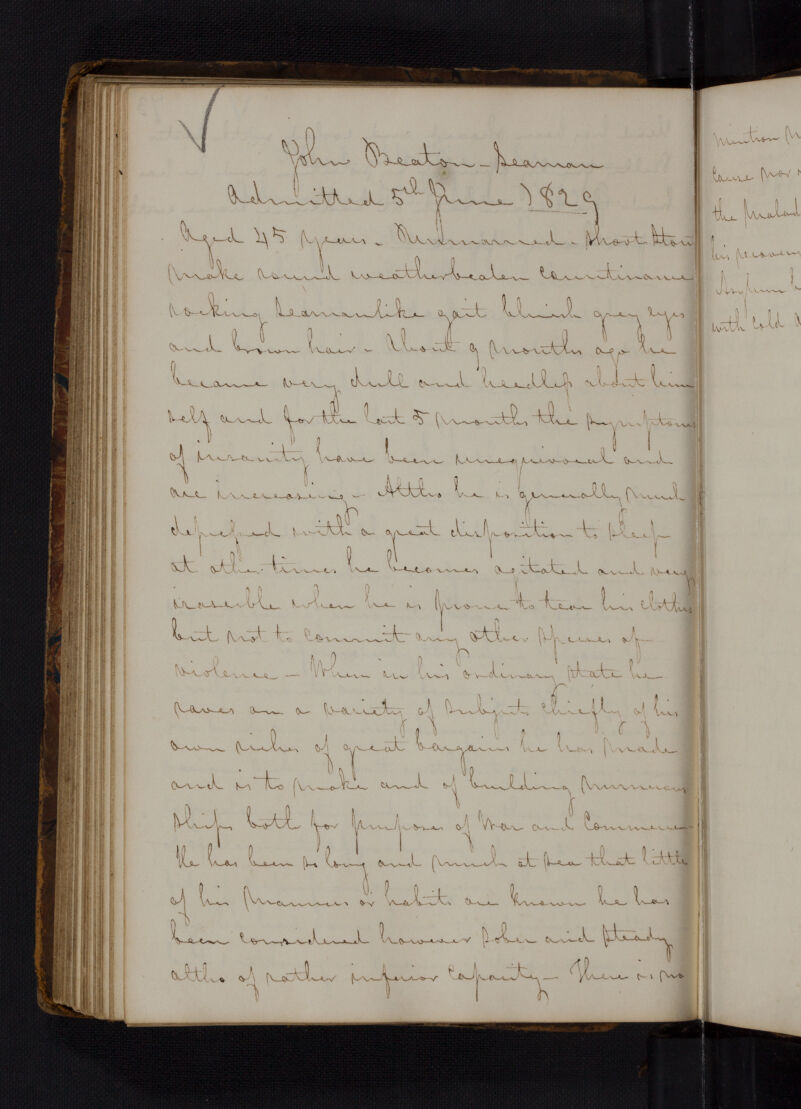 ✓
John Beaton - Seaman
Admitted 5th June 1829
Aged 45 years - Unmarried - short stout
make round weatherbeaten countinance
rocking seamanlike gait bluish grey eyes
and brown hair - About 9 months ago he
became very dull and heedless about him
self and for the last 5 months the symptoms
of insanity have been unequivocal and
are increasing - Altho he is generally much
depressed with a great disposition to sleep
at other times he becomes agitated and very
irascible when he is prone to tear his clothes
but not to commit any other species of
violence - When in his ordinary state he
raves on a variety of subjects chiefly of his
own riches of great bargains he has made
and is to make and of building numerous
ships both for purposes of War and Commerce
He has been so long and much at sea that little
of his manners or habits are known he has
been considered however sober and steady
altho of rather inferior capacity - There is no
mention
cause nor
the Malad
his recovery
Asylum
with cold